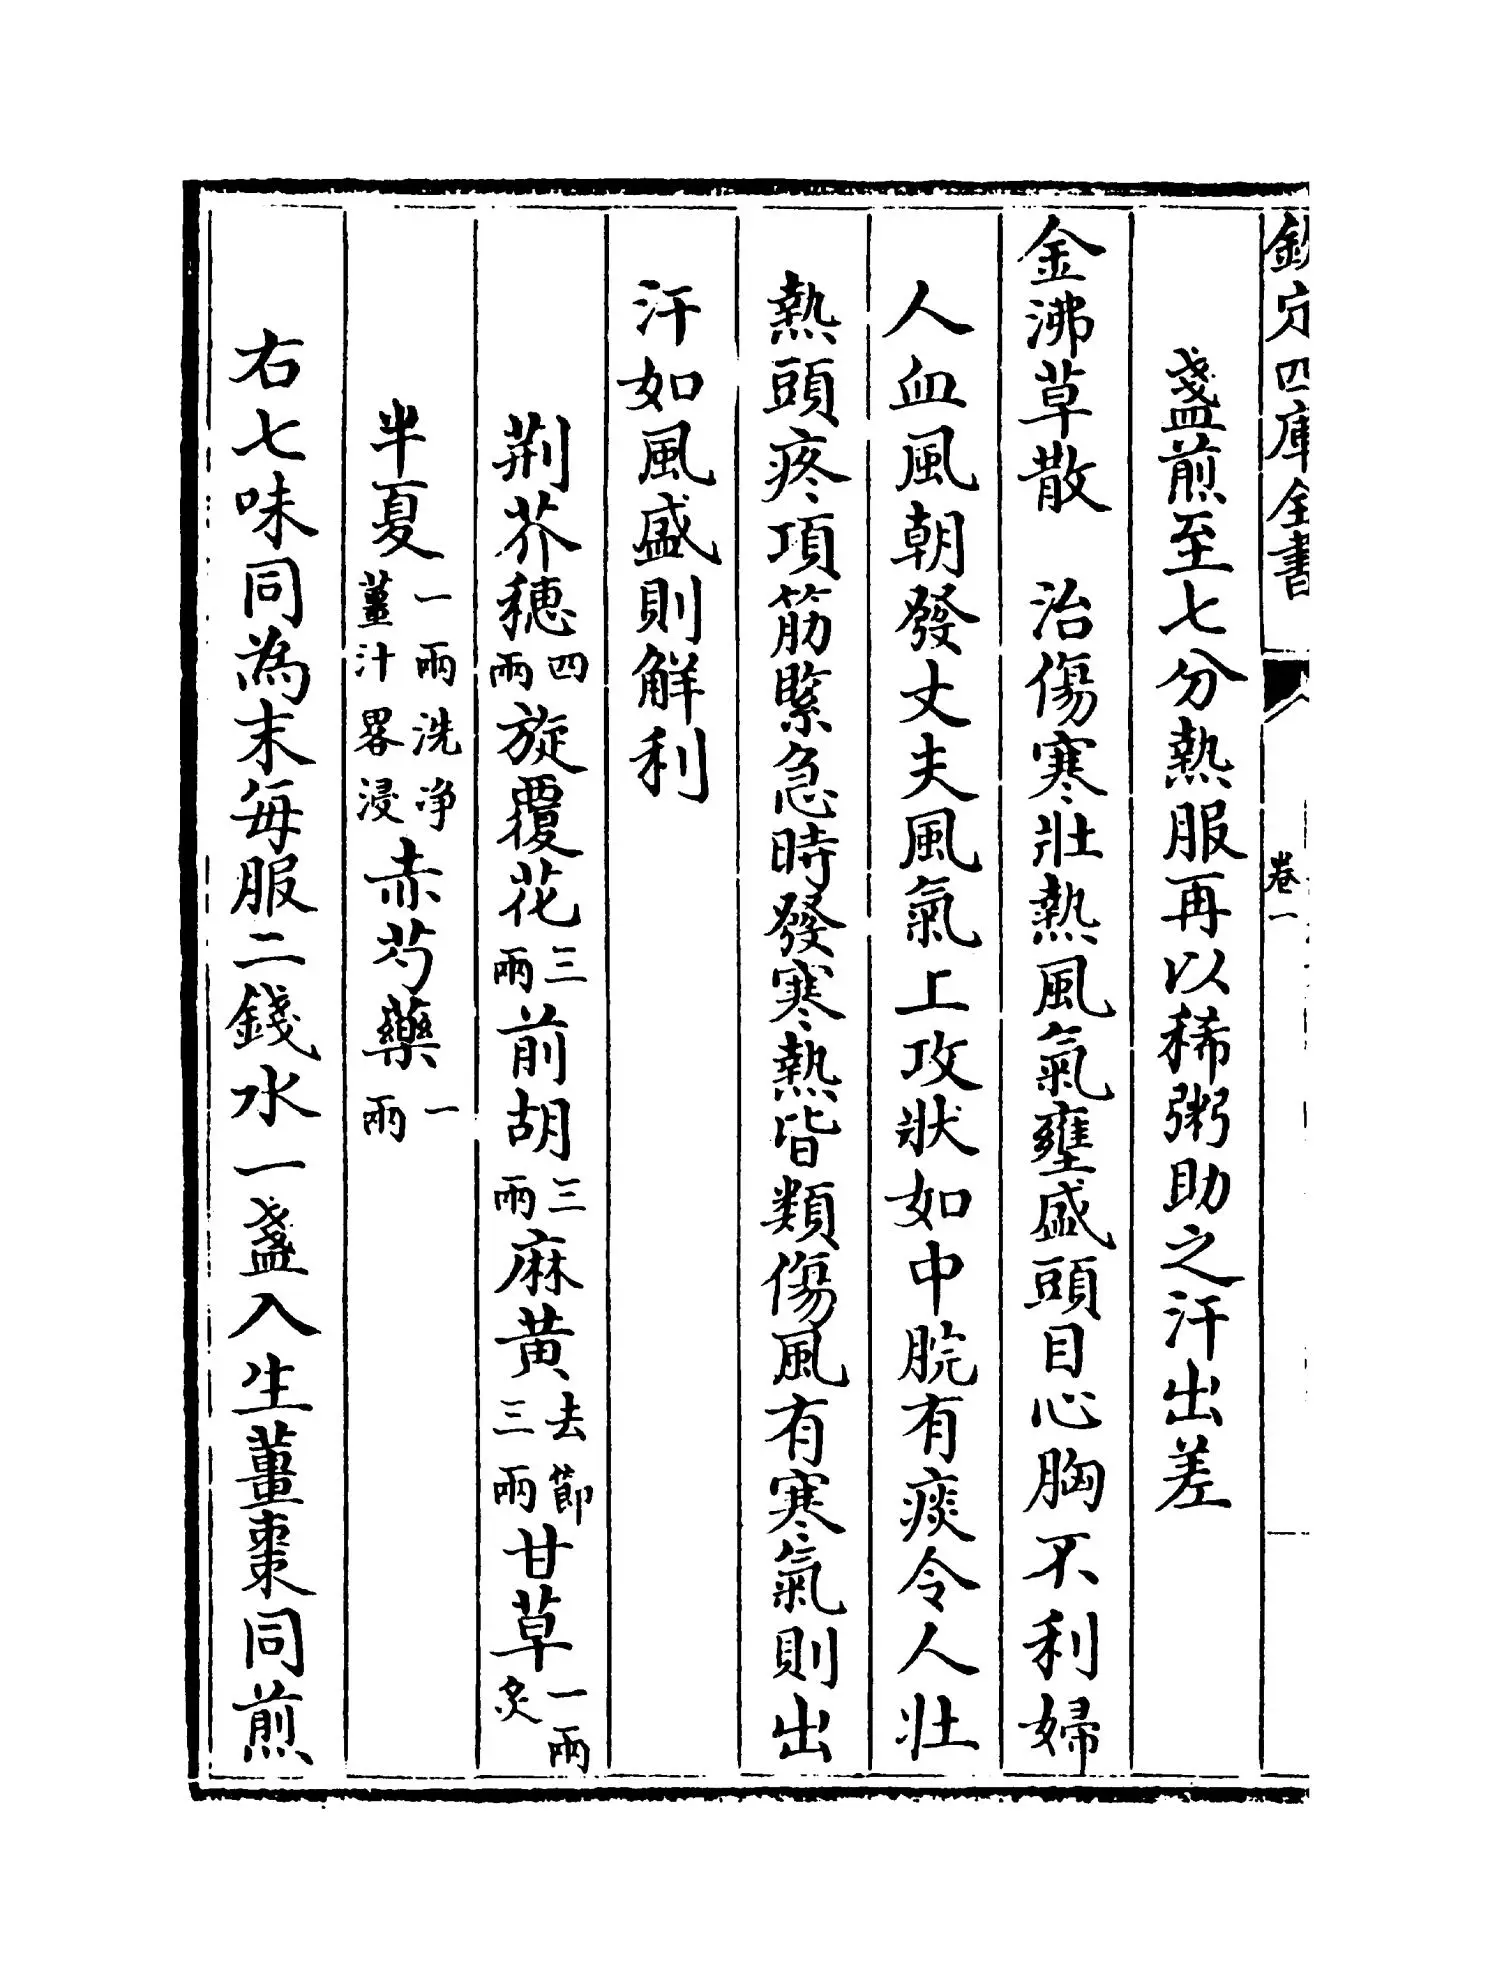 欽定四庫全書
卷一
盞煎至七分熱服再以稀粥助之汗出差
金沸草散　治傷寒壯熱風氣壅盛頭目心胸不利婦
人血風朝發丈夫風氣上攻狀如中脘有痰令人壯
熱頭疼項筋緊急時發寒熱皆類傷風有寒氣則出
汗如風盛則解利
荆芥穗四兩旋覆花三兩前胡三兩麻黄去節三兩甘草一兩炙
半夏一兩洗净薑汁畧浸赤芍藥一兩
右七味同為末每服二錢水一盞入生薑棗同煎